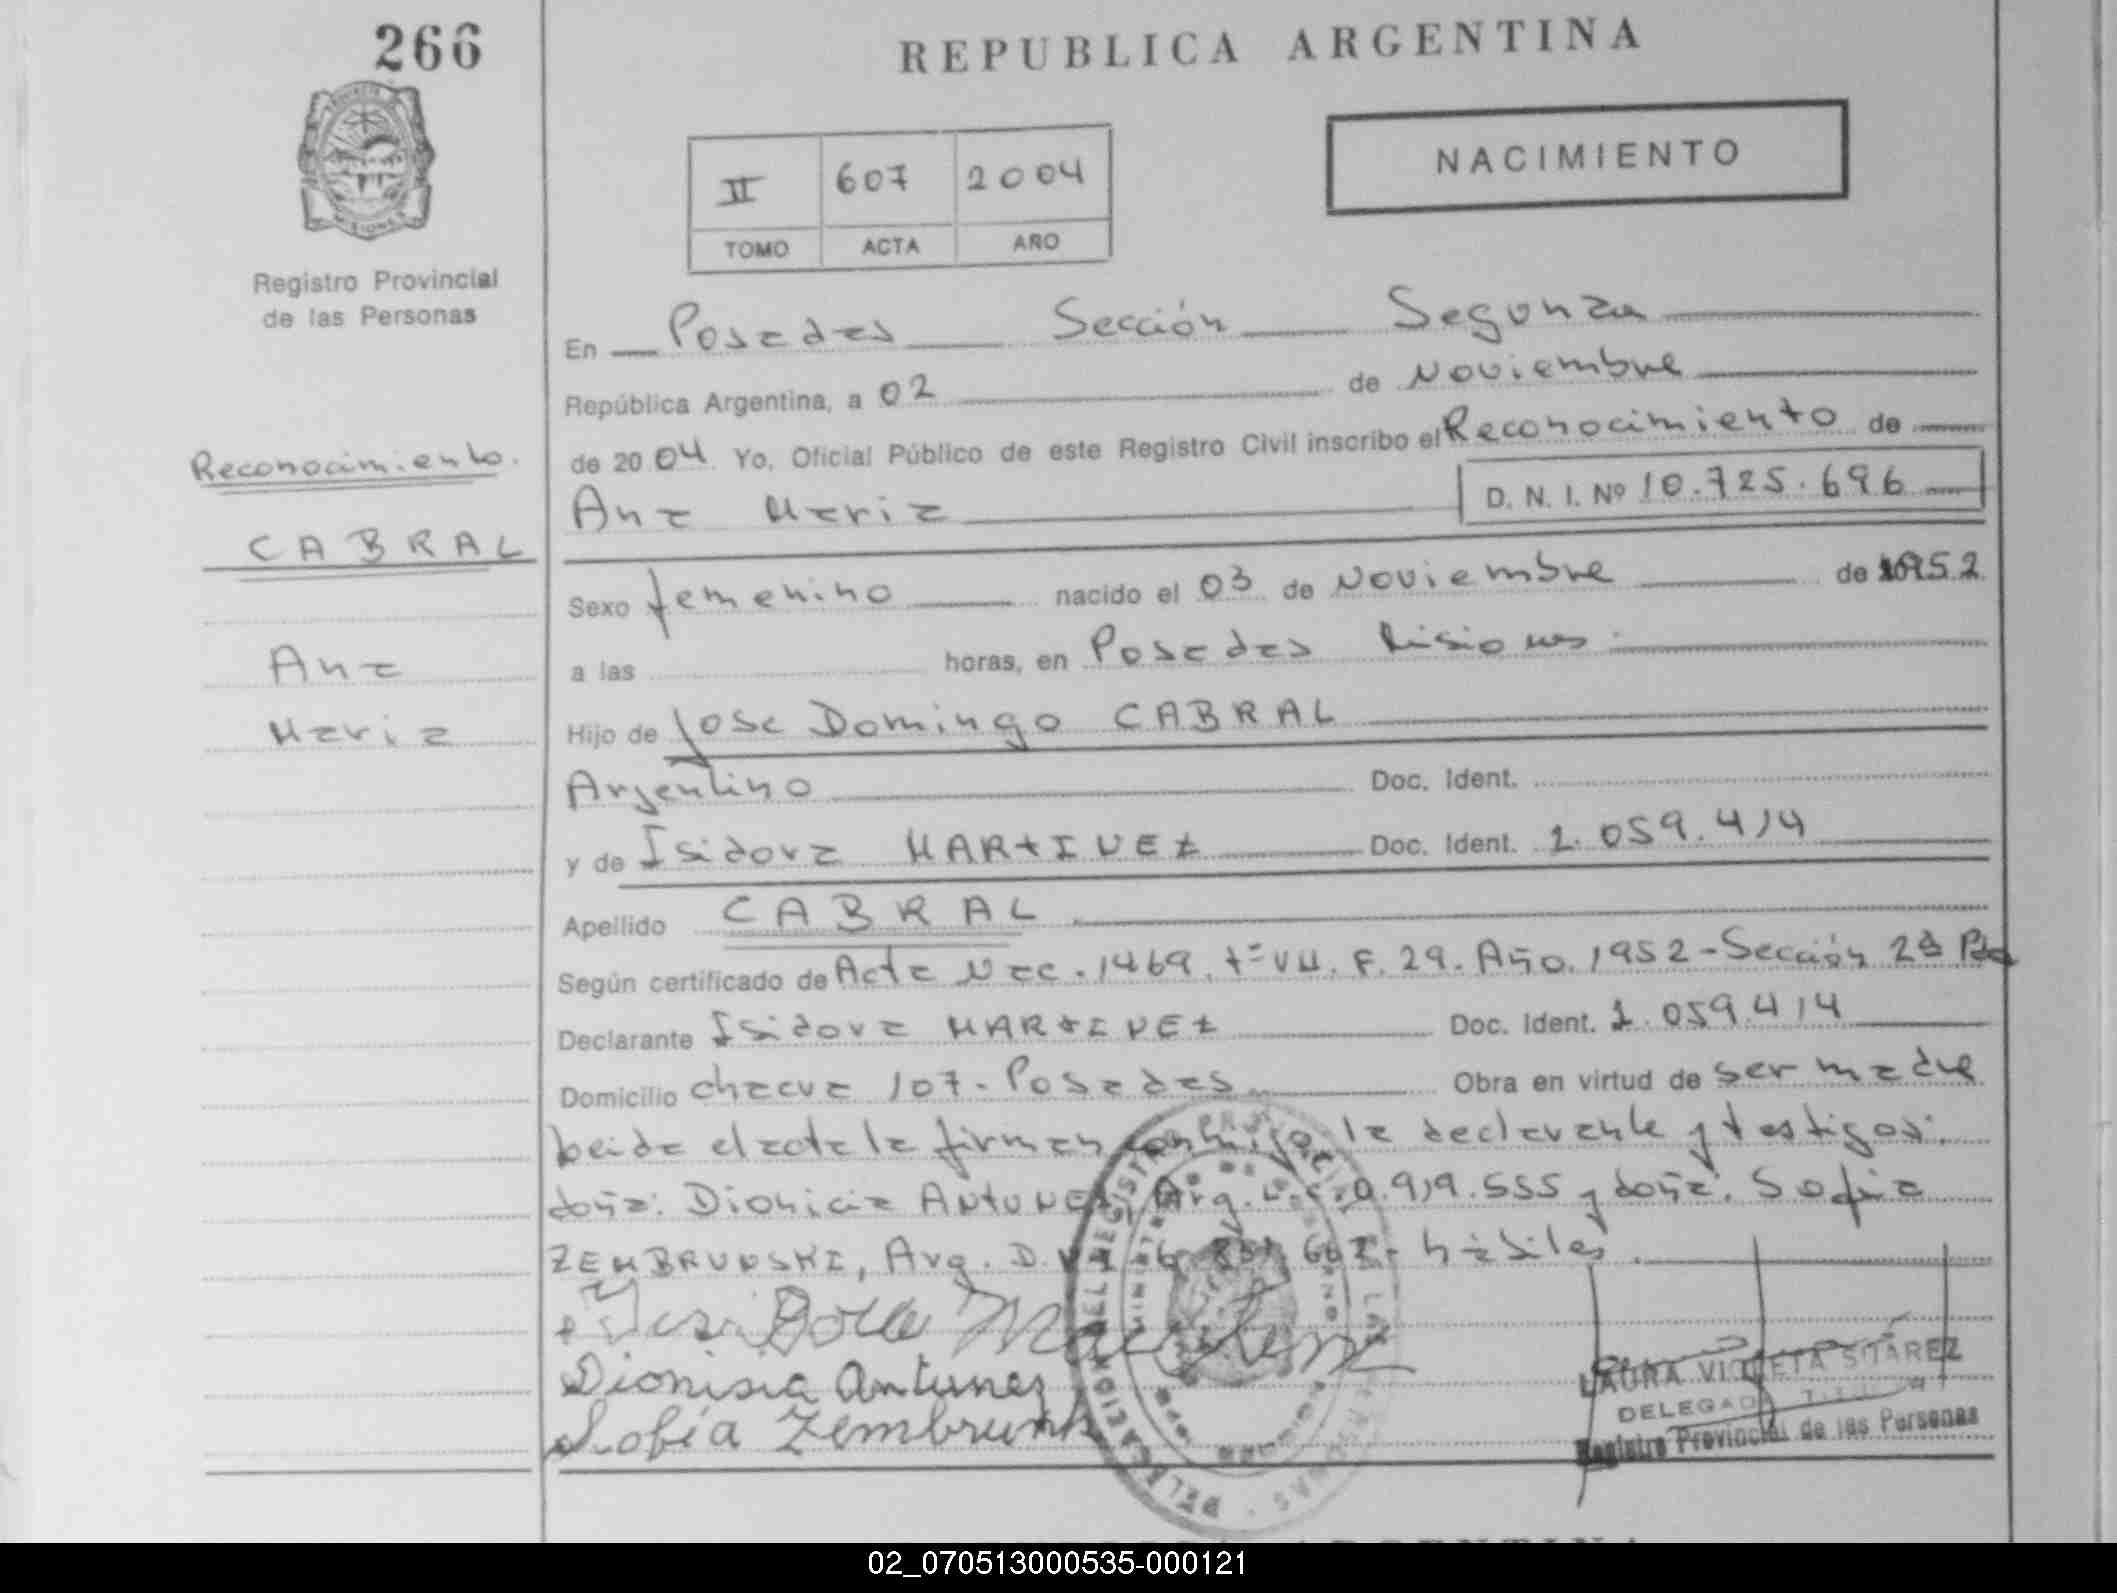 266
REPUBLICA ARGENTINA
NACIMIENTO
II 607 2004
TOMO ACTA AÑO
Registro Provincial
de las Personas
Reconocimiento.
CABRAL
Ana
Maria
En Posadas Sección Segunda
República Argentina, a 02 de Noviembre
de 2004 Yo, Oficial Público de este Registro Civil inscribo el Reconocimiento de
Ana Maria D. N. I. Nº 10.725.696
Sexo femenino nacido el 03 de Noviembre de 1952
a las horas, en Posadas Misiones.
Hijo de Jose Domingo CABRAL
Argentino Doc. Ident.
y de Isidora MARTINEZ Doc. Ident. 1.059.414
Apellido CABRAL
Según certificado de Acta Nac. 1469. tº VII. F. 29. Año. 1952 - Sección 2ª Pda
Declarante Isidora MARTINEZ Doc. Ident. 1.059.414
Domicilio chacra 107. Posadas Obra en virtud de ser madre
Leida el acta la firman conmigo la declarante y testigos:
doña: Dionicia ANTUNEZ, Arg. 919.555 y doña: Sofia
ZEMBRUNSKI, Arg. D. hábiles.
Isidora Martinez
Dionisia Antunez
Sofía Zembrunski
LAURA VIOLETA SUAREZ
DELEGADA TITULAR
Registro Provincial de las Personas
DELEGACION DEL REGISTRO PROVINCIAL DE LAS PERSONAS
MINISTERIO DE GOBIERNO
02_070513000535-000121